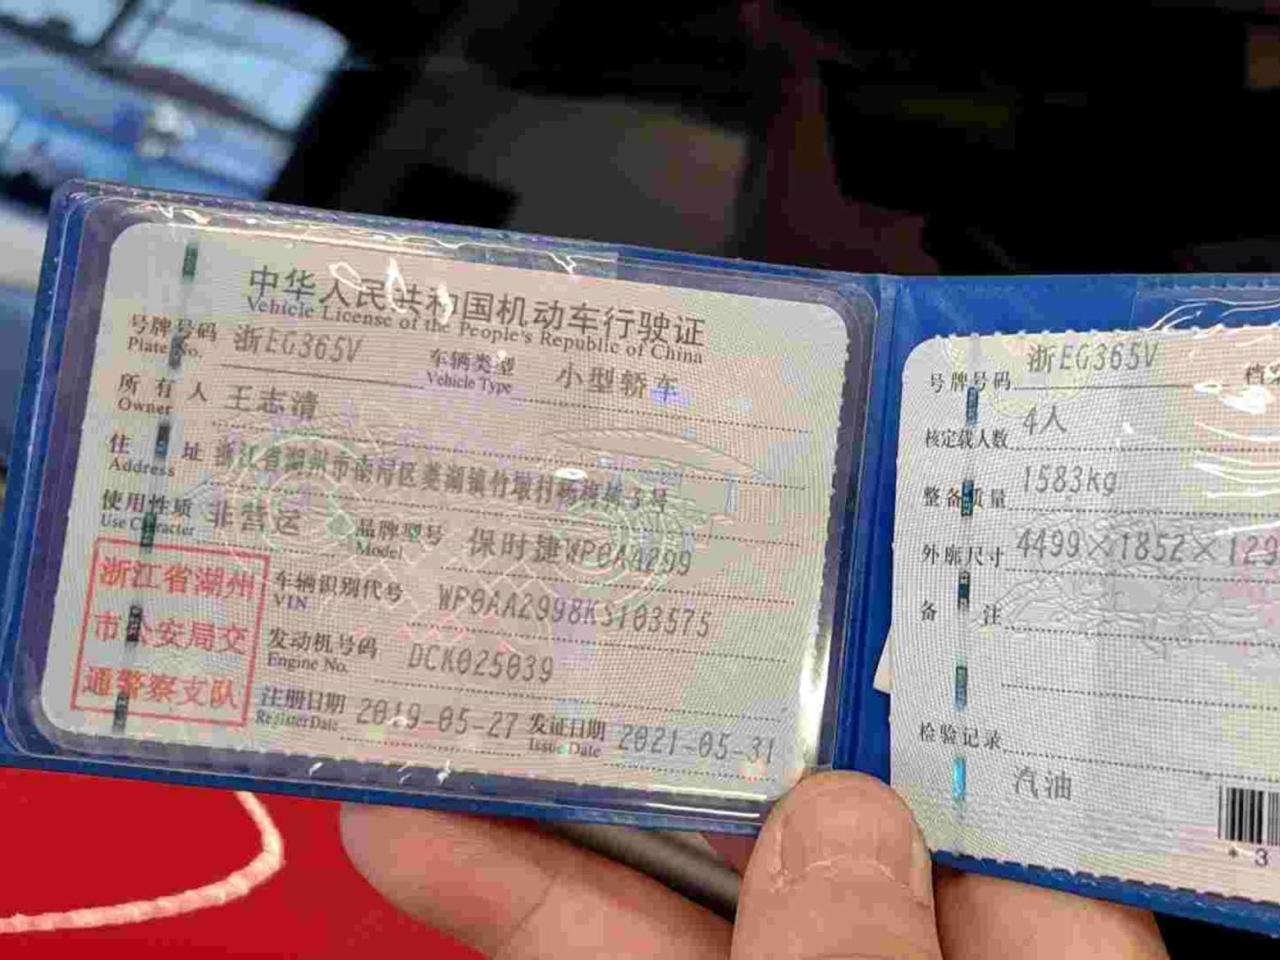 中华人民共和国机动车行驶证
Vehicle License of the People's Republic of China
号牌号码 浙EG365V 车辆类型 小型轿车
Plate No. Vehicle Type
所有人 王志清
Owner
住址 浙江省湖州市南浔区菱湖镇竹墩村杨滩埭5号
Address
使用性质 非营运 品牌型号 保时捷WP0AA299
Use Character Model
浙江省湖州
市公安局交
通警察支队
车辆识别代号 WP0AA2998KS103575
VIN
发动机号码 DCK025039
Engine No.
注册日期 2019-05-27 发证日期 2021-05-31
Register Date Issue Date
号牌号码 浙EG365V
核定载人数 4人
整备质量 1583kg
外廓尺寸 4499×1852×129
备注
检验记录
汽油
* 3